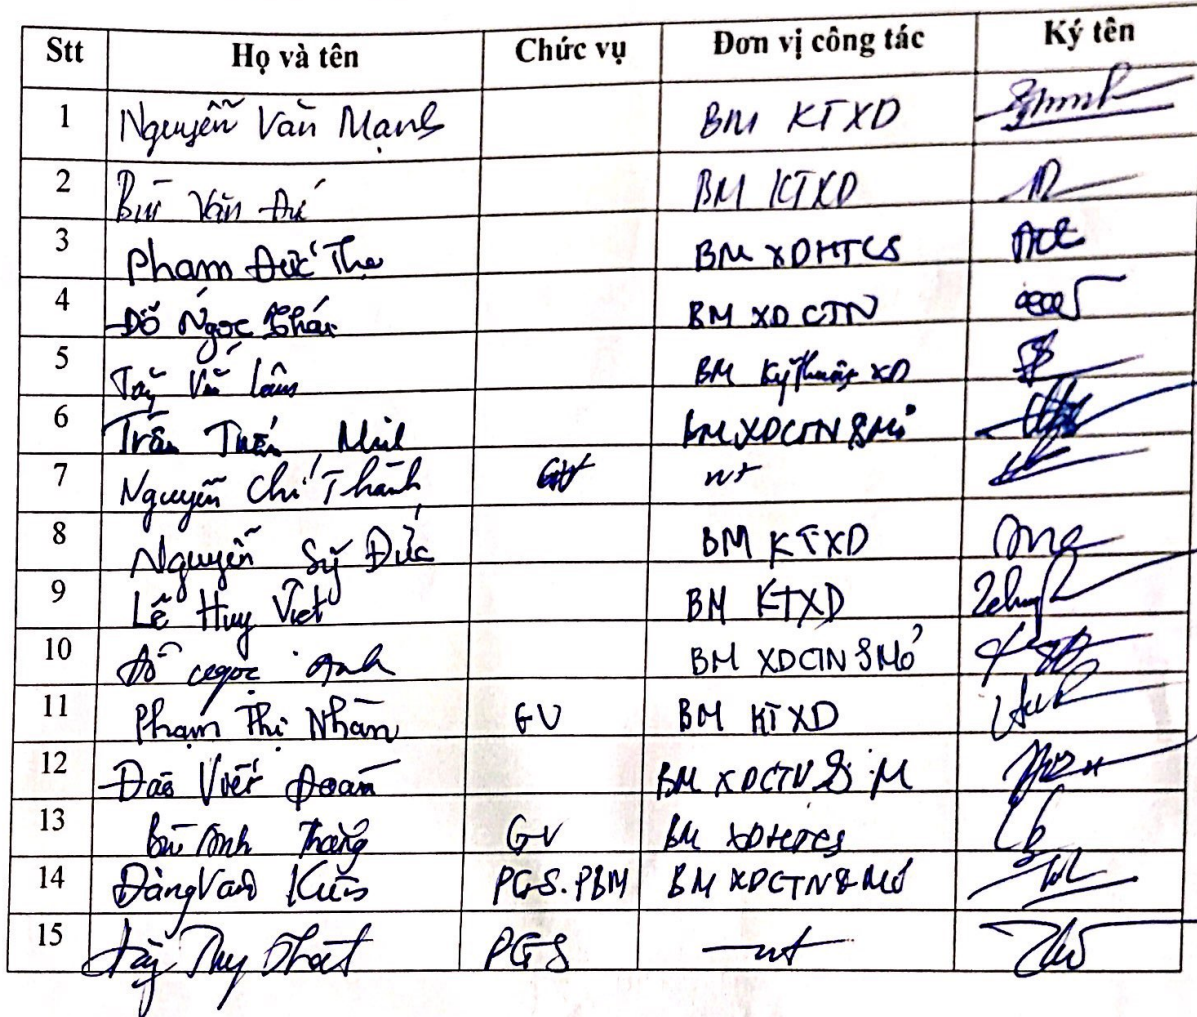 Stt Họ và tên Chức vụ Đơn vị công tác Ký tên
1 Nguyễn Văn Mạnh BM KTXD
2 Bùi Văn Đức BM KTXD
3 Phạm Đức Thọ BM XDHTCS
4 Đỗ Ngọc Thái BM XD CTN
5 Tăng Văn Lâm BM Kỹ thuật XD
6 Trần Tuấn Minh BM XDCTN & Mỏ
7 Nguyễn Chí Thành GV nt
8 Nguyễn Sỹ Đức BM KTXD
9 Lê Huy Việt BM KTXD
10 Đỗ Ngọc Anh BM XDCTN & Mỏ
11 Phạm Thị Nhàn GV BM KTXD
12 Đào Viết Đoàn BM XDCTN & M
13 Bùi Anh Thắng GV BM XDHTCS
14 Đặng Văn Kiên PGS.PBM BM XDCTN & Mỏ
15 PGS nt